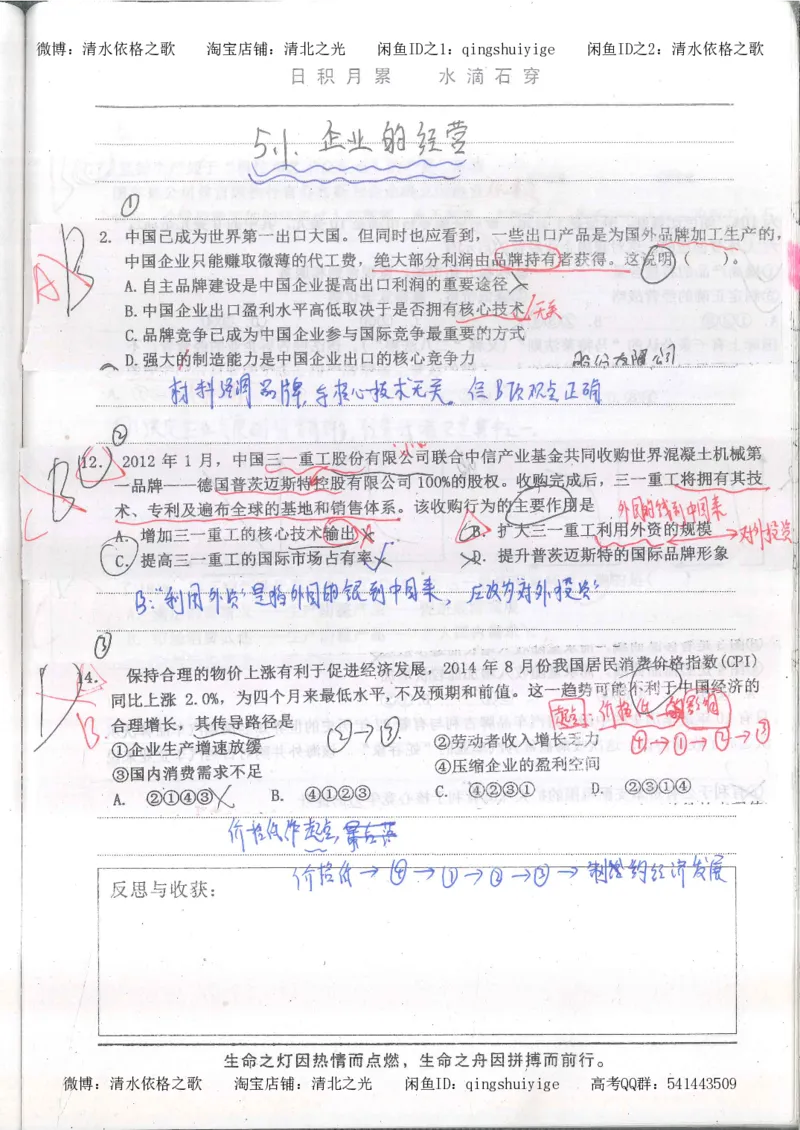 微博：清水依格之歌 淘宝店铺：清北之光 闲鱼ID之1：qingshuiyige 闲鱼ID之2：清水依格之歌
日积月累 水滴石穿
5.1. 企业的经营
①
2. 中国已成为世界第一出口大国。但同时也应看到，一些出口产品是为国外品牌加工生产的，
中国企业只能赚取微薄的代工费，绝大部分利润由品牌持有者获得。这说明（ ）。
B
A
A.自主品牌建设是中国企业提高出口利润的重要途径
B.中国企业出口盈利水平高低取决于是否拥有核心技术 无关
C.品牌竞争已成为中国企业参与国际竞争最重要的方式
D.强大的制造能力是中国企业出口的核心竞争力
股份有限公司
材料强调品牌，与核心技术无关。但B项观点正确
②
12. 2012 年 1 月，中国三一重工股份有限公司联合中信产业基金共同收购世界混凝土机械第
一品牌——德国普茨迈斯特控股有限公司 100%的股权。收购完成后，三一重工将拥有其技
术、专利及遍布全球的基地和销售体系。该收购行为的主要作用是
B
C
外国的钱到中国来
A. 增加三一重工的核心技术输出
B. 扩大三一重工利用外资的规模 对外投资
C. 提高三一重工的国际市场占有率
D. 提升普茨迈斯特的国际品牌形象
B："利用外资"是指外国的钱到中国来，应改为对外投资
③
14. 保持合理的物价上涨有利于促进经济发展，2014 年 8 月份我国居民消费价格指数(CPI)
同比上涨 2.0%，为四个月来最低水平,不及预期和前值。这一趋势可能不利于中国经济的
合理增长，其传导路径是
D
B
②→③
起点：价格低 影响
④→①→②→③
①企业生产增速放缓 ②劳动者收入增长乏力
③国内消费需求不足 ④压缩企业的盈利空间
A. ②①④③ B. ④①②③ C. ④②③① D. ②③①④
价格低作起点
价格低→④→①→②→③→制约经济发展
反思与收获：
生命之灯因热情而点燃，生命之舟因拼搏而前行。
微博：清水依格之歌 淘宝店铺：清北之光 闲鱼ID：qingshuiyige 高考QQ群：541443509